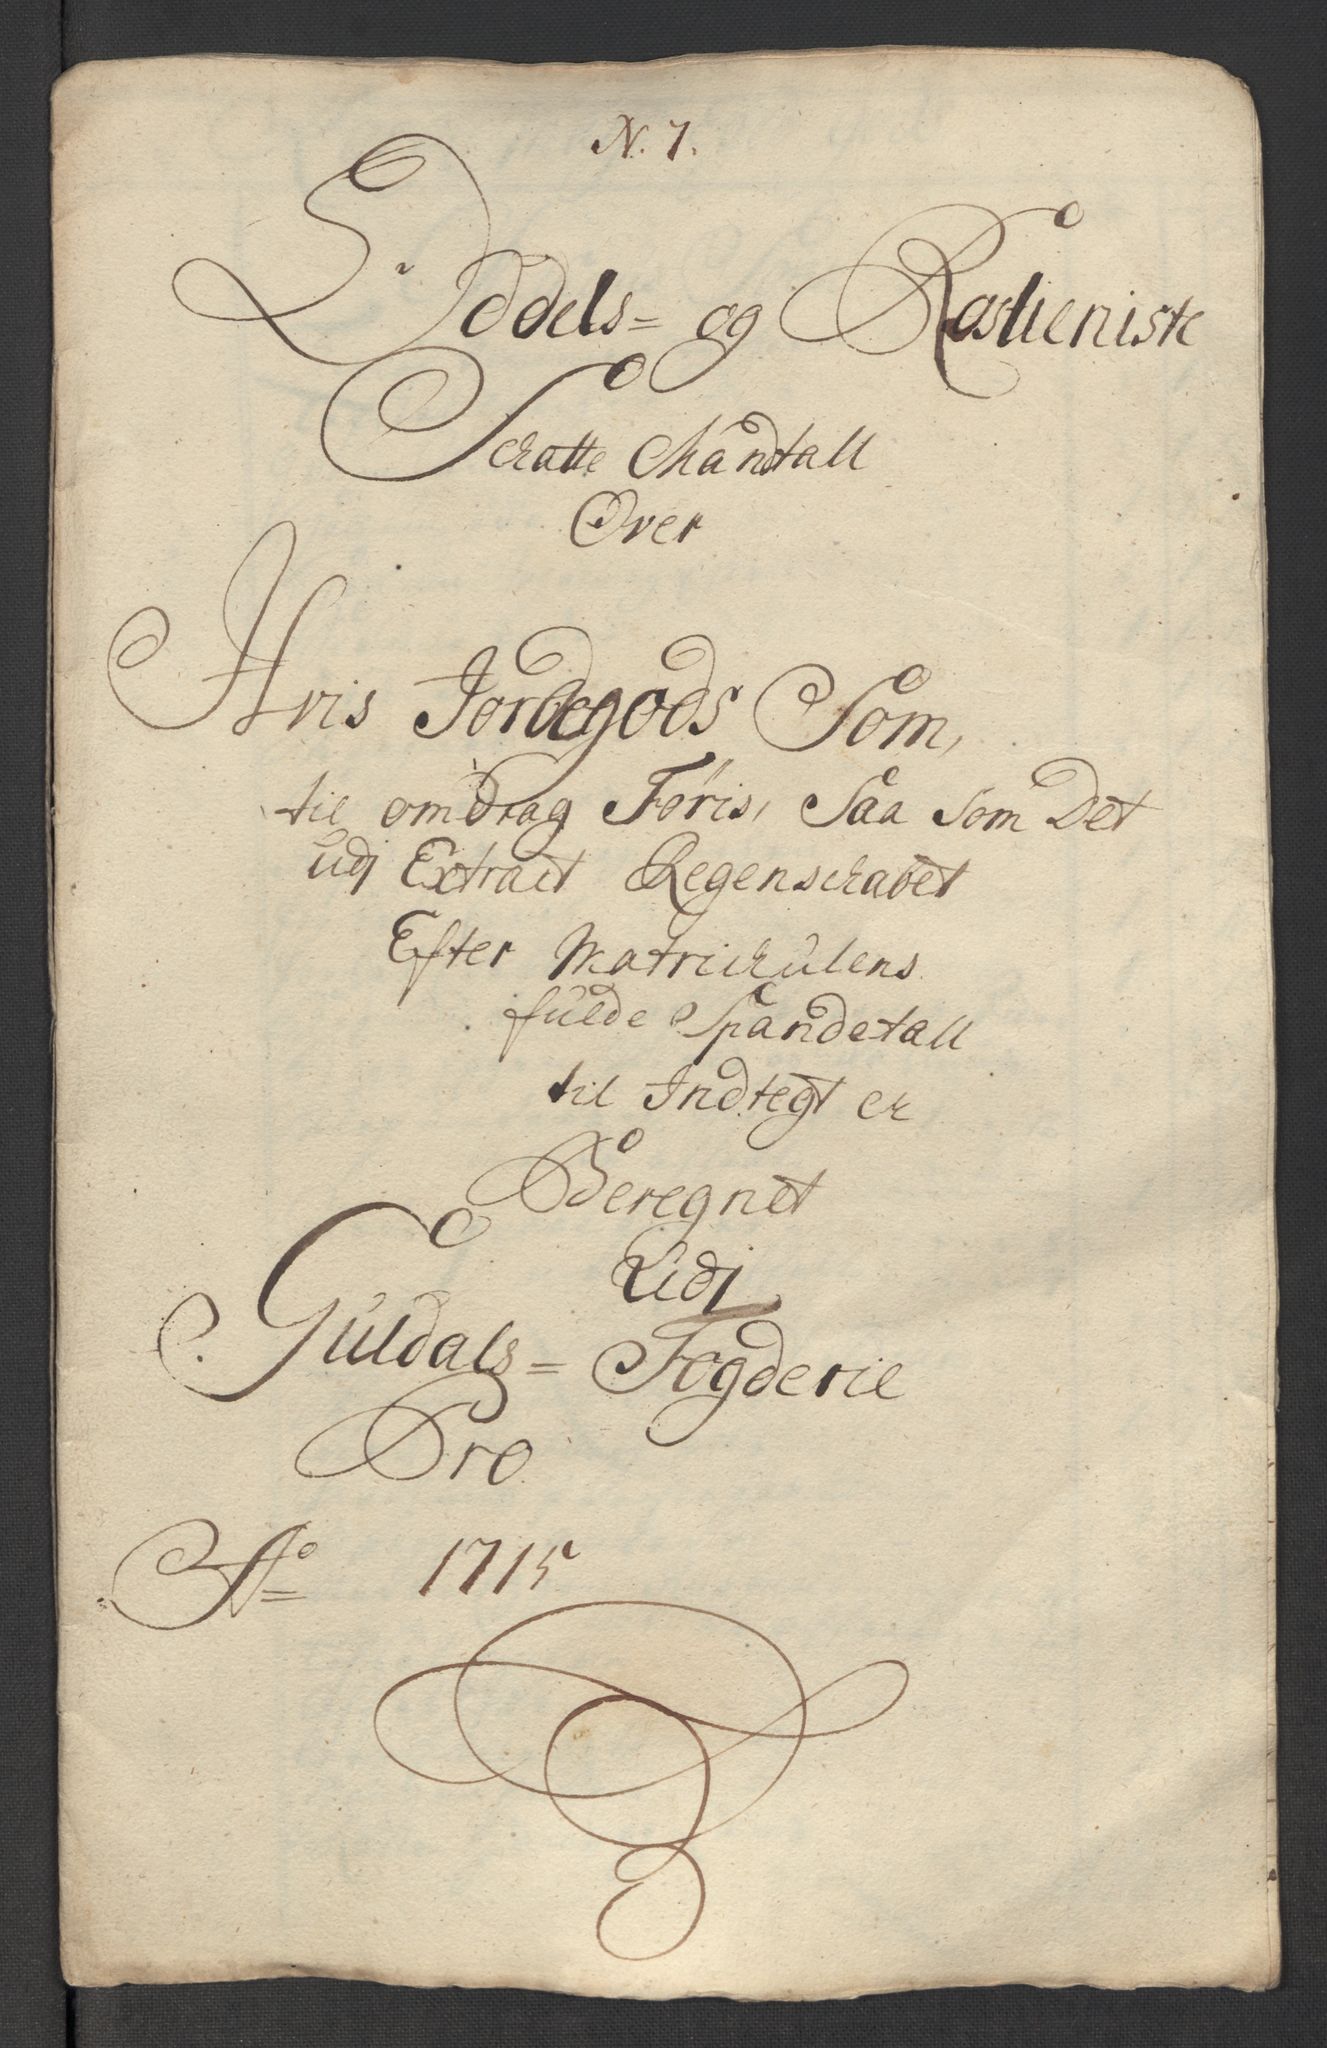 N. 7.
Oddels= og Rostieniste
Schatte Mandtall
Over
Hvis Jordegods Som,
til omdrag Føris, Saa som Det
udj Extract Regenschabet
Efter Matrichulens
fulde Spandetall
til Indtegt er
Beregnet
Udj
Guldals= Fogderie
Pro
Ao 1715